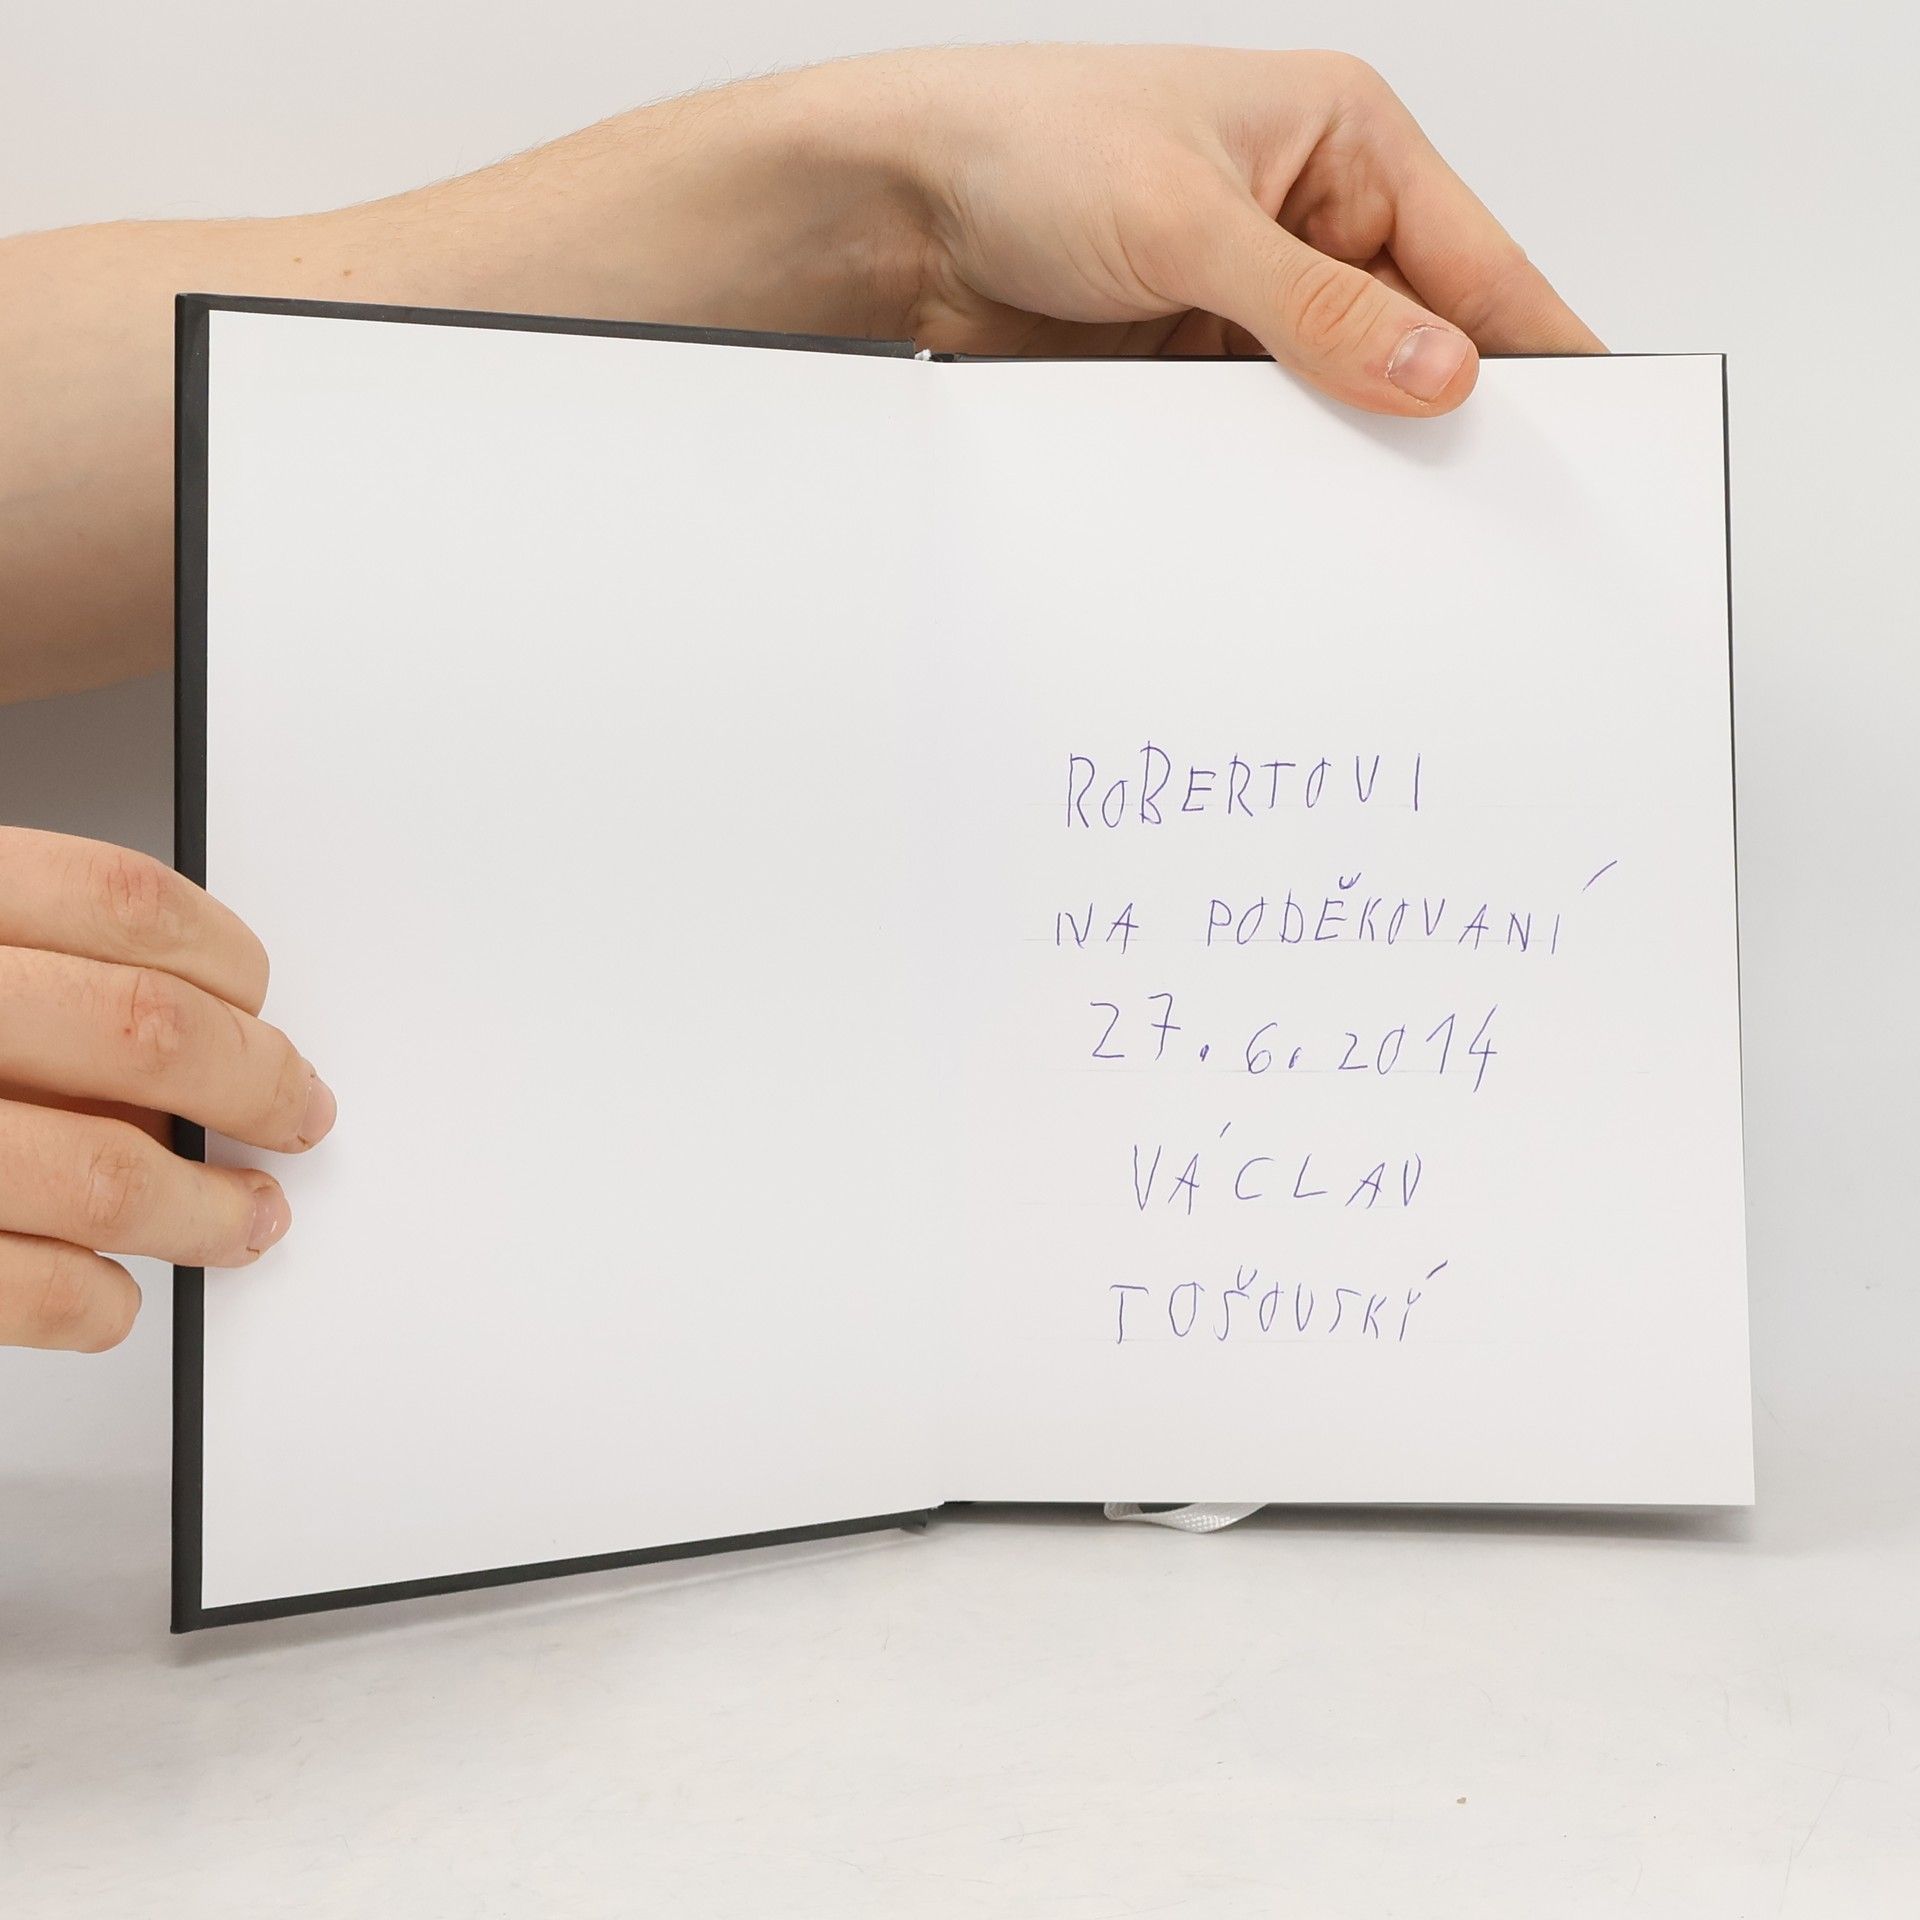 ROBERTOVI
NA PODĚKOVANÍ
27.6.2014
VÁCLAV
TOŠOVSKÝ